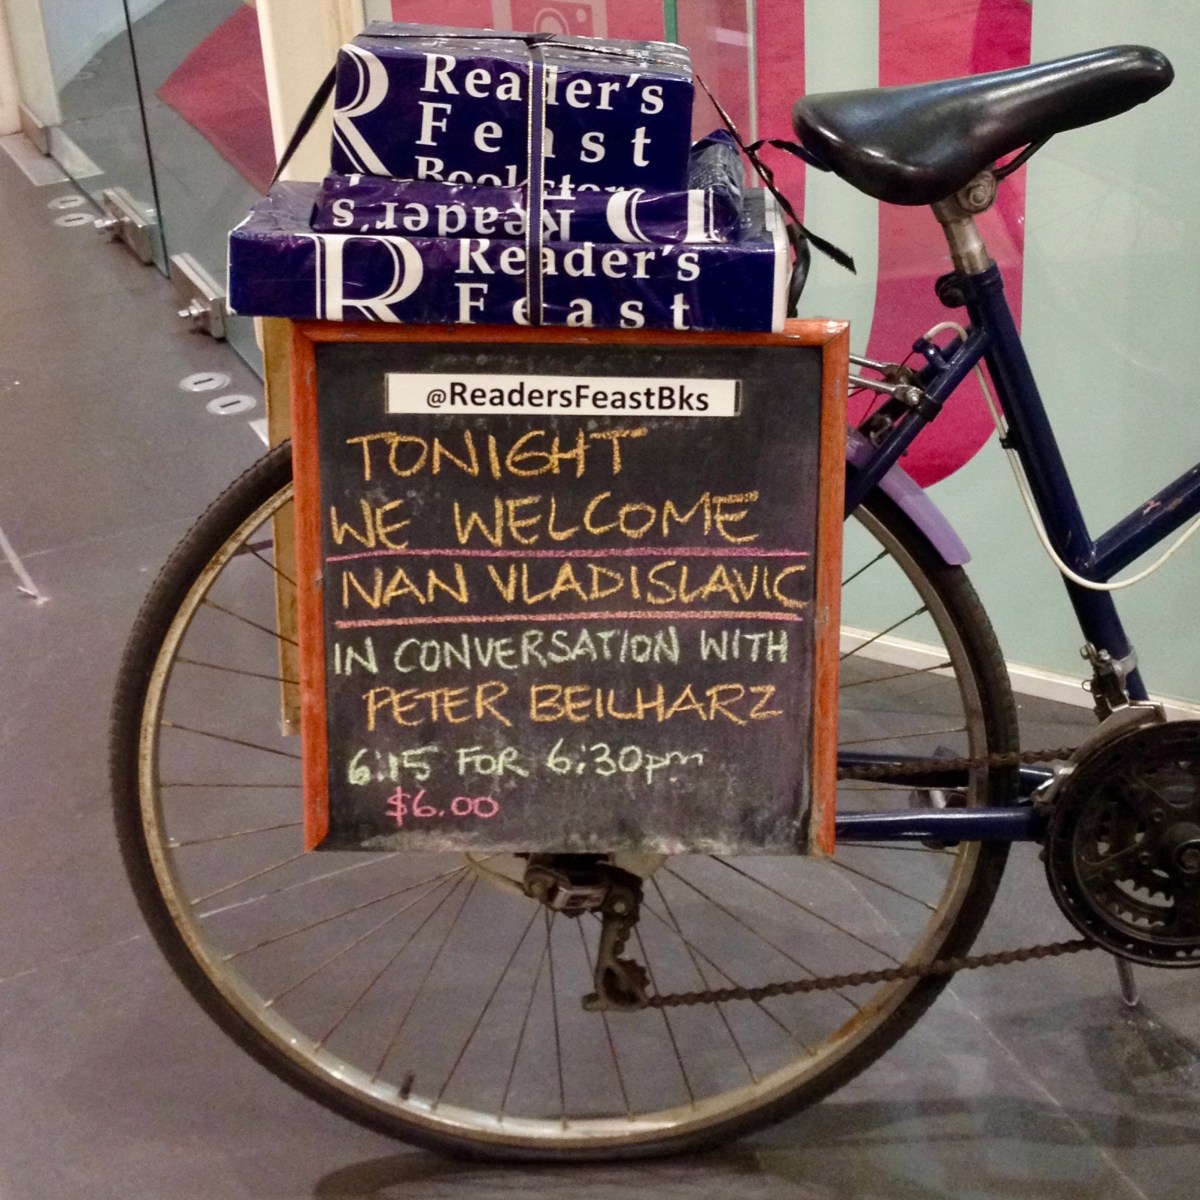 Reader's
Feast
Bookstore
Reader's
Reader's
Feast
@ReadersFeastBks
TONIGHT
WE WELCOME
IVAN VLADISLAVIC
IN CONVERSATION WITH
PETER BEILHARZ
6:15 FOR 6:30pm
$6.00